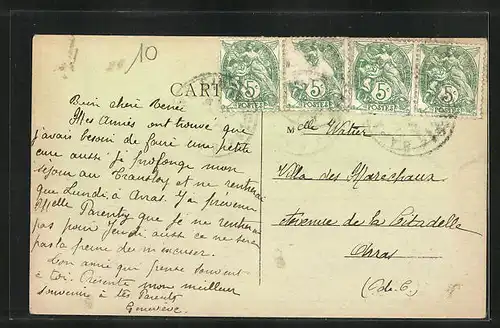 10
CART
5c POSTES
5c POSTES
5c POSTES
5c POSTES
Bien chère Renée
Mes Amies ont trouvé que
j'avais besoin de faire une petite
cure aussi je prolonge mon
séjour au Transloy et ne rentrerai
que Lundi à Arras. J'ai prévenu
Melle Parenty que je ne rentrerai
pas pour Jeudi aussi ce ne sera
pas la peine de m'excuser.
Ton amie qui pense souvent
à toi. Présente mon meilleur
souvenir à tes Parents
Geneviève.
Melle Watier
Villa des Maréchaux
Avenue de la Citadelle
Arras
(P.-de-C.)